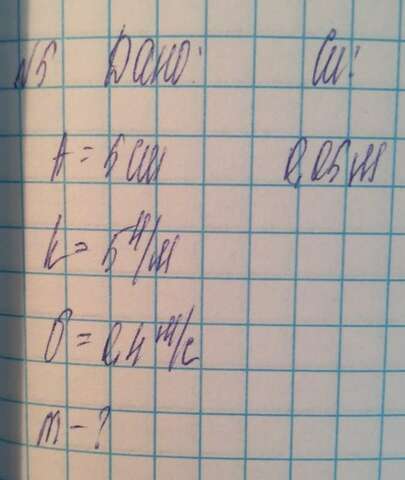 №5 Дано: Си:
A = 5 см 0,05 м
k = 5 Н/м
υ = 0,4 м/с
m - ?